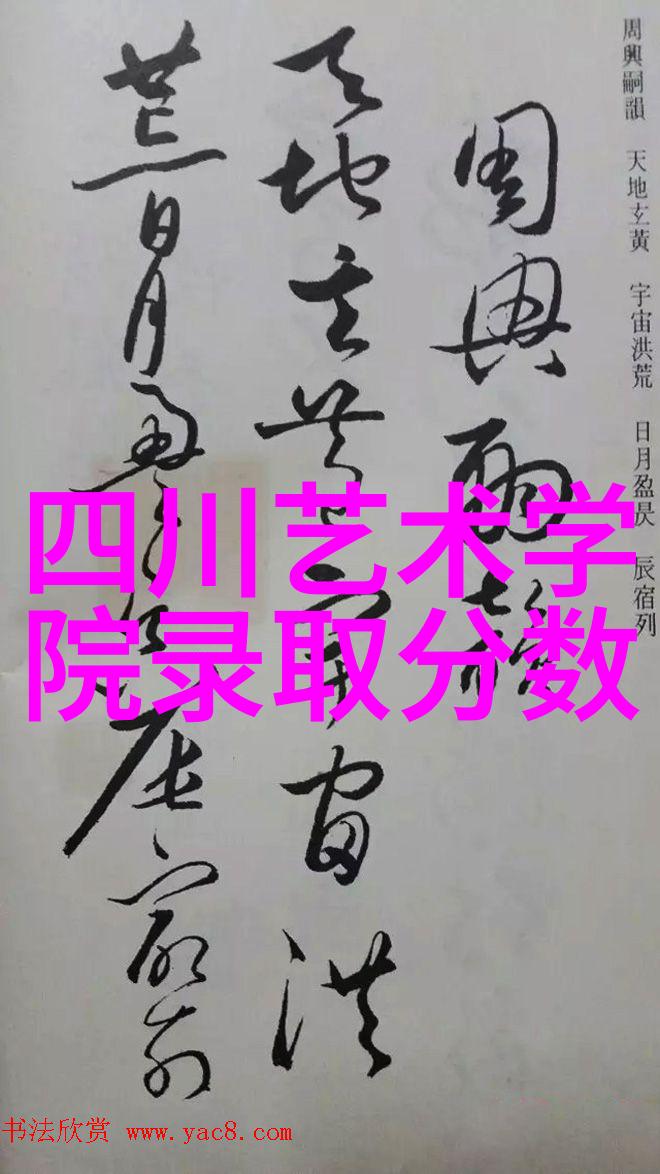 周興嗣韻 天地玄黃 宇宙洪荒 日月盈昃 辰宿列
周興嗣韻
天地玄黃宇宙洪
荒日月盈昃辰宿列
四川艺术学
院录取分数
书法欣赏 www.yac8.com